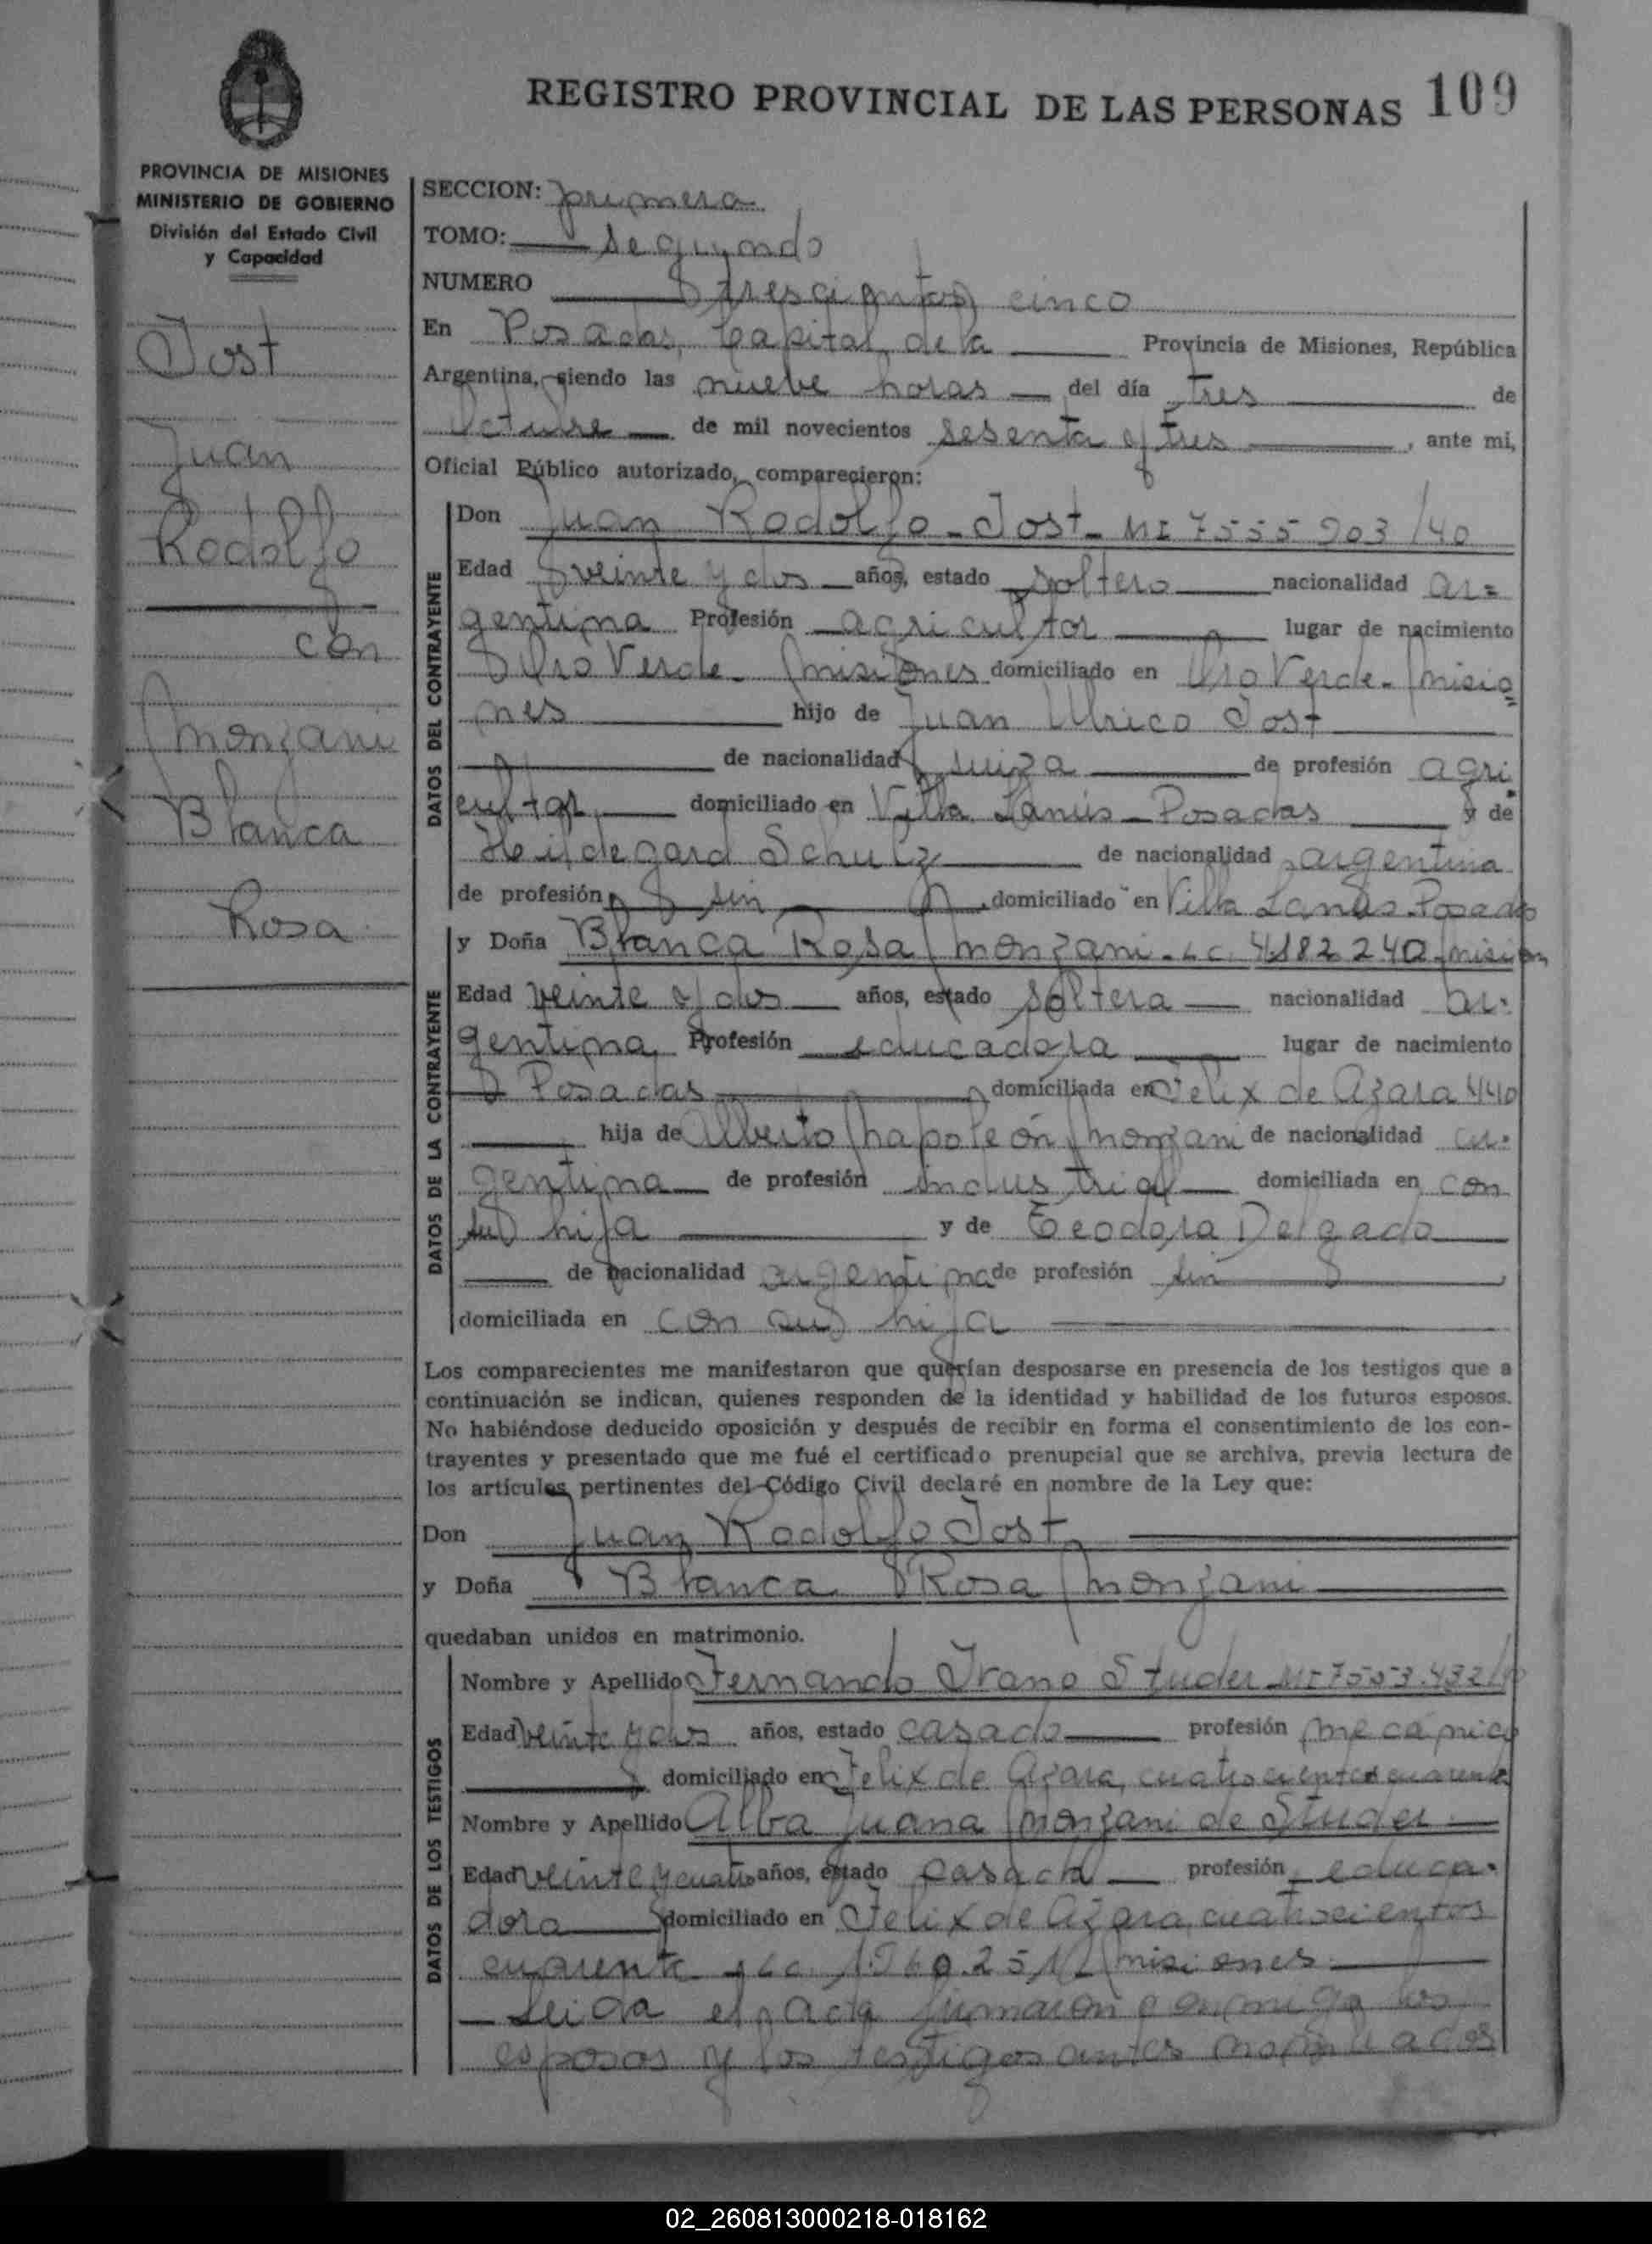 REGISTRO PROVINCIAL DE LAS PERSONAS 109
PROVINCIA DE MISIONES
MINISTERIO DE GOBIERNO
División del Estado Civil
y Capacidad
Jost
Juan
Rodolfo
con
Monzani
Blanca
Rosa
SECCION: primera
TOMO: segundo
NUMERO trescientos cinco
En Posadas, Capital de la Provincia de Misiones, República
Argentina, siendo las nueve horas del día tres de
Octubre de mil novecientos sesenta y tres, ante mi,
Oficial Público autorizado, comparecieron:
DATOS DEL CONTRAYENTE
Don Juan Rodolfo Jost - MI 7555903/40
Edad veinte y dos años, estado soltero nacionalidad ar=
gentina Profesión agricultor lugar de nacimiento
Oro Verde - Misiones domiciliado en Oro Verde - Misio=
nes hijo de Juan Ulrico Jost
de nacionalidad suiza de profesión agri
cultor domiciliado en Villa Lanús - Posadas y de
Heildegard Schulz de nacionalidad argentina
de profesión sin domiciliado en Villa Lanús - Posadas
DATOS DE LA CONTRAYENTE
y Doña Blanca Rosa Monzani - L.C. 4.182.240 Mision
Edad veinte y dos años, estado soltera nacionalidad ar-
gentina Profesión educadora lugar de nacimiento
Posadas domiciliada en Felix de Azara 440
hija de Alberto Napoleón Monzani de nacionalidad ar-
gentina de profesión industrial domiciliada en con
su hija y de Teodora Delgado
de nacionalidad argentina de profesión sin
domiciliada en con su hija
Los comparecientes me manifestaron que querían desposarse en presencia de los testigos que a
continuación se indican, quienes responden de la identidad y habilidad de los futuros esposos.
No habiéndose deducido oposición y después de recibir en forma el consentimiento de los con-
trayentes y presentado que me fué el certificado prenupcial que se archiva, previa lectura de
los artículos pertinentes del Código Civil declaré en nombre de la Ley que:
Don Juan Rodolfo Jost
y Doña Blanca Rosa Monzani
quedaban unidos en matrimonio.
DATOS DE LOS TESTIGOS
Nombre y Apellido Fernando Studer MI 7553.432
Edad veinte y dos años, estado casado profesión mecánico
domiciliado en Felix de Azara, cuatrocientos cuarenta
Nombre y Apellido Alba Juana Monzani de Studer
Edad veinte y cuatro años, estado casada profesión educa-
dora domiciliado en Felix de Azara, cuatrocientos
cuarenta L.C. Misiones.
Leida el acta firmaron conmigo los
esposos y los testigos antes nombrados
02_260813000218-018162